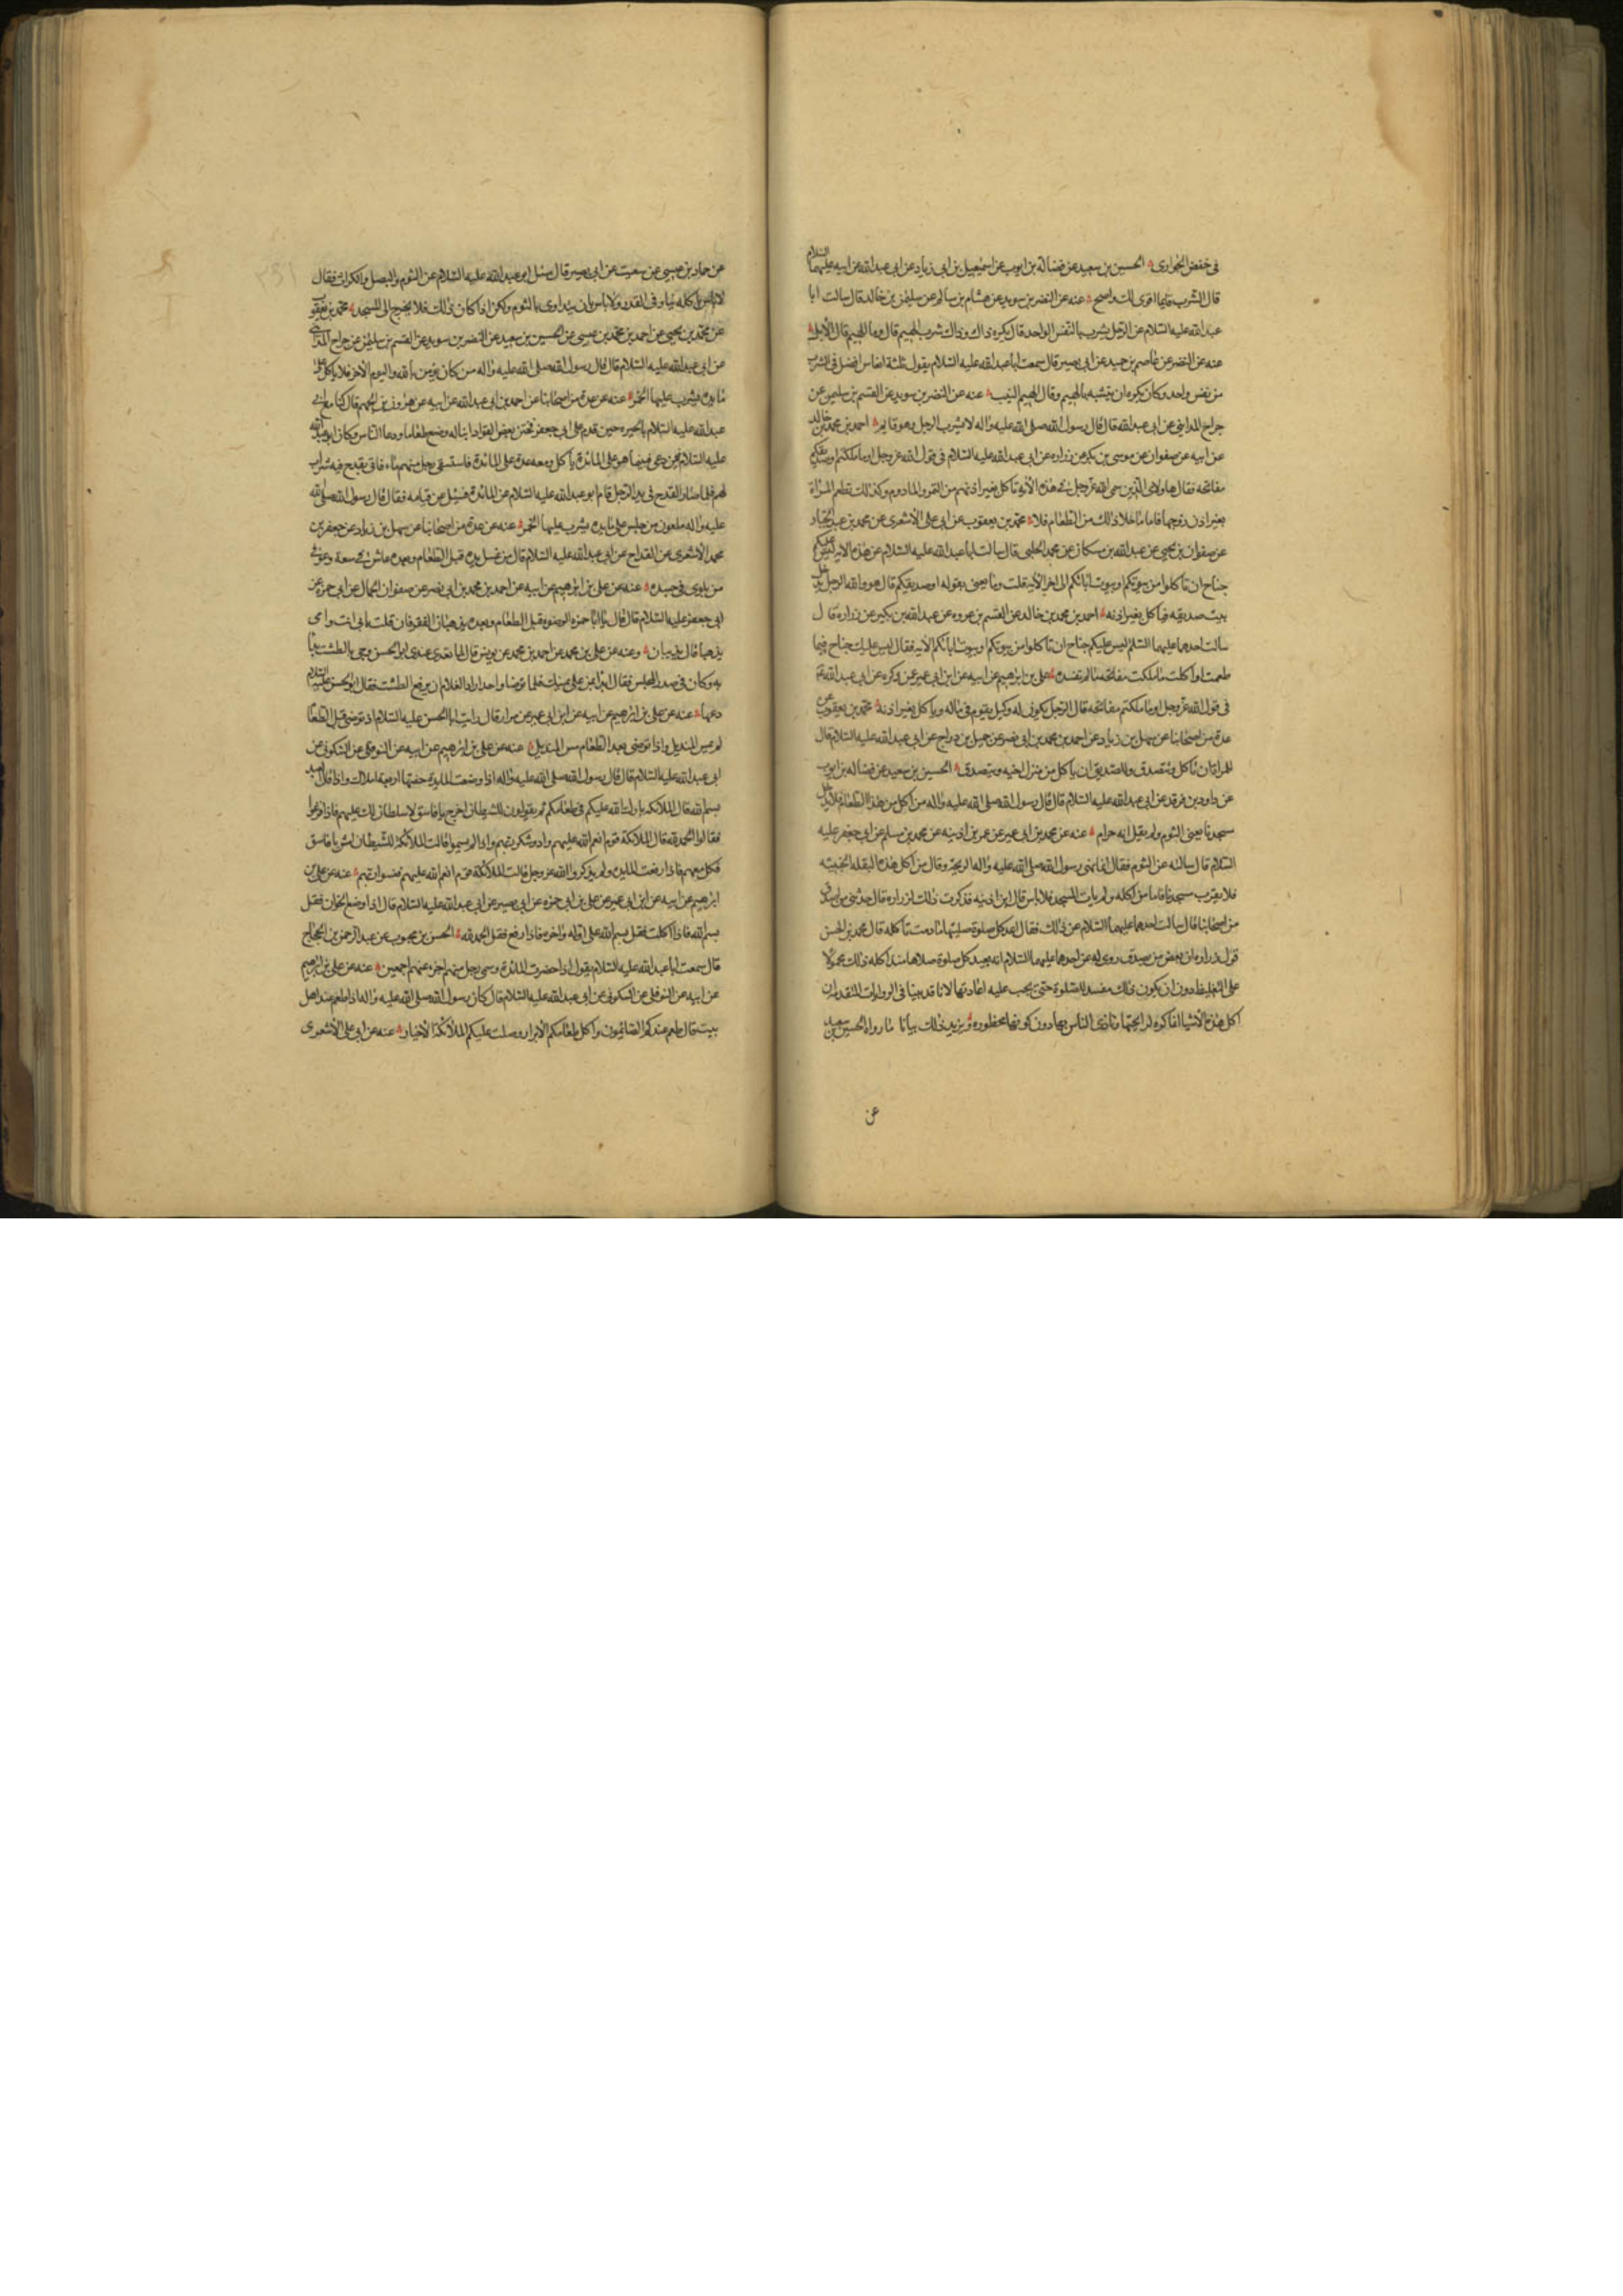 في خفض الجواري الحسين بن سعيد عن فضالة بن ايوب عن اسمعيل بن ابي زياد عن ابي عبد الله عن ابيه عليهما السلام
قال الشرب قايما اقوى لك واصح عنه عن النضر بن سويد عن هشام بن سالم عن سليمن بن خالد قال سالت ابا
عبد الله عليه السلام عن الرجل يشرب بالنفس الواحد قال يكره ذاك وذاك شرب الهيم قال وما الهيم قال الأبل
عنه عن النضر عن عاصم بن حميد عن ابي بصير قال سمعت ابا عبد الله عليه السلام يقول ثلثة انفاس افضل في الشرب
من نفس واحد وكان يكره ان يتشبه بالهيم وقال الهيم النيب عنه عن النضر بن سويد عن القسم بن سليمن عن
جراح المدايني عن ابي عبد الله قال قال رسول الله صلى الله عليه واله لا يشرب الرجل وهو قايم احمد بن محمد بن خالد
عن ابيه عن صفوان عن موسى بن بكر عن زراره عن ابي عبد الله عليه السلام في قول الله عز وجل او ما ملكتم
مفاتحه فقال هاولاي الذين سمى الله عز وجل في هذه الأية تأكل بغير اذنهم من التمر والمادوم وكذلك تطعم المرأة
بغير اذن زوجها فاما ما خلا ذلك من الطعام فلا محمد بن يعقوب عن ابي علي الأشعرى عن محمد بن عبد الجبار
عن صفوان بن يحيى عن عبد الله بن مسكان عن محمد الحلبي قال سالت ابا عبد الله عليه السلام عن هذه الاية ليس عليكم
جناح ان تاكلوا من بيوتكم او بيوت ابائكم الى اخر الأية قلت وما يعني بقوله او صديقكم قال هو والله الرجل يدخل
بيت صديقه فياكل بغير اذنه احمد بن محمد بن خالد عن القسم بن عروه عن عبد الله بن بكير عن زراره قال
سالت احدهما عليهما السلام ليس عليكم جناح ان تاكلوا من بيوتكم او بيوت ابائكم الآية فقال ليس عليك جناح فيما
طعمت او اكلت مما ملكت مفاتحه ما لم تفسده علي بن ابرهيم عن ابيه عن ابن ابي عمير عمن ذكره عن ابي عبد الله عم
في قول الله عز وجل او ما ملكتم مفاتحه قال الرجل يكون له وكيل يقوم في ماله وياكل بغير اذنه محمد بن يعقوب عن
عدة من اصحابنا عن سهل بن زياد عن احمد بن محمد بن ابي نصر عن جميل بن دراج عن ابي عبد الله عليه السلام قال
للمراة ان تاكل وتتصدق وللصديق ان ياكل من منزل اخيه ويتصدق الحسين بن سعيد عن فضاله بن ايوب
عن داود بن فرقد عن ابي عبد الله عليه السلام قال قال رسول الله صلى الله عليه واله من اكل من هذا الطعام فلا يدخل
مسجدنا يعني الثوم ولم يقل انه حرام عنه عن محمد بن ابي عمير عن عمر بن اذينه عن محمد بن مسلم عن ابي جعفر عليه
السلام قال سالته عن الثوم فقال انما نهى رسول الله صلى الله عليه واله لريحه وقال من اكل هذه البقله الخبيثه
فلا يقرب مسجدنا فاما من اكله ولم يات المسجد فلا باس قال ابن اذينه فذكرت ذلك لزراره قال حدثني من اصدق
من اصحابنا قال سالت احدهما عليهما السلام عن ذلك فقال اعد كل صلوة صليتها ما دمت تاكله قال محمد بن الحسن
قول زراره ان بعض من يصدق روى له عن احدهما عليهما السلام انه يعيد كل صلوة صلاها منذ اكله ذلك محمولا
على التغليظ دون ان يكون ذلك مفسد للصلوة حتى يجب عليه اعادتها لانا قد بينا في الروايات المتقدمة ان
اكل هذه الأشيا انما كره لرايحتها وتاذى الناس بها دون كونها محظوره ويزيد ذلك بيانا ما رواه الحسين بن سعيد
عن
عن حماد بن عيسى عن شعيب عن ابي بصير قال سئل ابو عبد الله عليه السلام عن الثوم والبصل والكراث فقال
لا باس باكله نيا وفي القدر ولا باس بان يتداوى بالثوم ولكن اذا كان ذلك فلا يخرج الى المسجد محمد بن يعقوب
عن محمد بن يحيى عن احمد بن محمد بن عيسى عن الحسين بن سعيد عن النضر بن سويد عن القسم بن سليمن عن جراح المدايني
عن ابي عبد الله عليه السلام قال قال رسول الله صلى الله عليه واله من كان يؤمن بالله واليوم الأخر فلا ياكل على
مايدة يشرب عليها الخمر عنه عن عدة من اصحابنا عن احمد بن ابي عبد الله عن ابيه عن هرون بن الجهم قال كنا مع ابي
عبد الله عليه السلام بالحيره حين قدم على ابي جعفر فختن بعض القواد ابنا له وصنع طعاما ودعا الناس وكان ابو عبد الله
عليه السلام فيمن دعي فبينما هو على المائدة ياكل ومعه عدة على المائدة فاستسقى رجل منهم ماء فاتي بقدح فيه شراب
لهم فلما صار القدح في يد الرجل قام ابو عبد الله عليه السلام عن المائدة فسئل عن قيامه فقال قال رسول الله صلى الله
عليه واله ملعون من جلس على مايدة يشرب عليها الخمر عنه عن عدة من اصحابنا عن سهل بن زياد عن جعفر بن
محمد الأشعرى عن القداح عن ابي عبد الله عليه السلام قال من غسل يده قبل الطعام وبعده عاش في سعة وعوفي
من بلوى في جسده عنه عن علي بن ابرهيم عن ابيه عن احمد بن محمد بن ابي نصر عن صفوان الجمال عن ابي حمزه عن
ابي جعفر عليه السلام قال قال يا ابا حمزه الوضوء قبل الطعام وبعده يذهبان الفقر فان قلت بابي انت وامي
يذهبان قال يذيبان وعنه عن علي بن محمد عن احمد بن محمد عن يونس قال لما تغدى عندى ابو الحسن وجي بالطشت بدا
به وكان في صدر المجلس فقال ابدا بمن على يمينك فلما توضا واحد اراد الغلام ان يرفع الطشت فقال ابو الحسن عليه السلام
دعها عنه عن علي بن ابرهيم عن ابيه عن ابن ابي عمير عن مرازم قال رايت ابا الحسن عليه السلام اذ توضى قبل الطعام
لم يمس المنديل واذا توضى بعد الطعام مس المنديل عنه عن علي بن ابرهيم عن ابيه عن النوفلي عن السكوني عن
ابي عبد الله عليه السلام قال قال رسول الله صلى الله عليه واله اذا وضعت المايدة حفتها اربعة املاك واذا قال العبد
بسم الله قال الملائكه بارك الله عليكم في طعامكم ثم يقولون للشيطان اخرج يا فاسق لا سلطان لك عليهم فاذا فرغوا
فقالوا الحمد لله قال الملائكة قوم انعم الله عليهم وادوا شكر ربهم واذا لم يسموا قالت الملائكة للشيطان ادن يا فاسق
فكل معهم فاذا رفعت المايده ولم يذكروا الله عز وجل قالت الملائكة قوم انعم الله عليهم فنسوا ربهم عنه عن علي بن
ابرهيم عن ابيه عن ابن ابي عمير عن علي بن ابي حمزه عن ابي بصير عن ابي عبد الله عليه السلام قال اذا وضع الخوان فقل
بسم الله فاذا اكلت فقل بسم الله على اوله واخره فاذا رفع فقل الحمد لله الحسن بن محبوب عن عبد الرحمن بن الحجاج
قال سمعت ابا عبد الله عليه السلام يقول اذا حضرت المائدة وسمى رجل منهم اجزء عنهم اجمعين عنه عن علي بن ابرهيم
عن ابيه عن النوفلي عن السكوني عن ابي عبد الله عليه السلام قال كان رسول الله صلى الله عليه واله اذا طعم عند اهل
بيت قال طعم عندكم الصائمون واكل طعامكم الأبرار وصلت عليكم الملائكة الأخيار عنه عن ابي علي الأشعرى